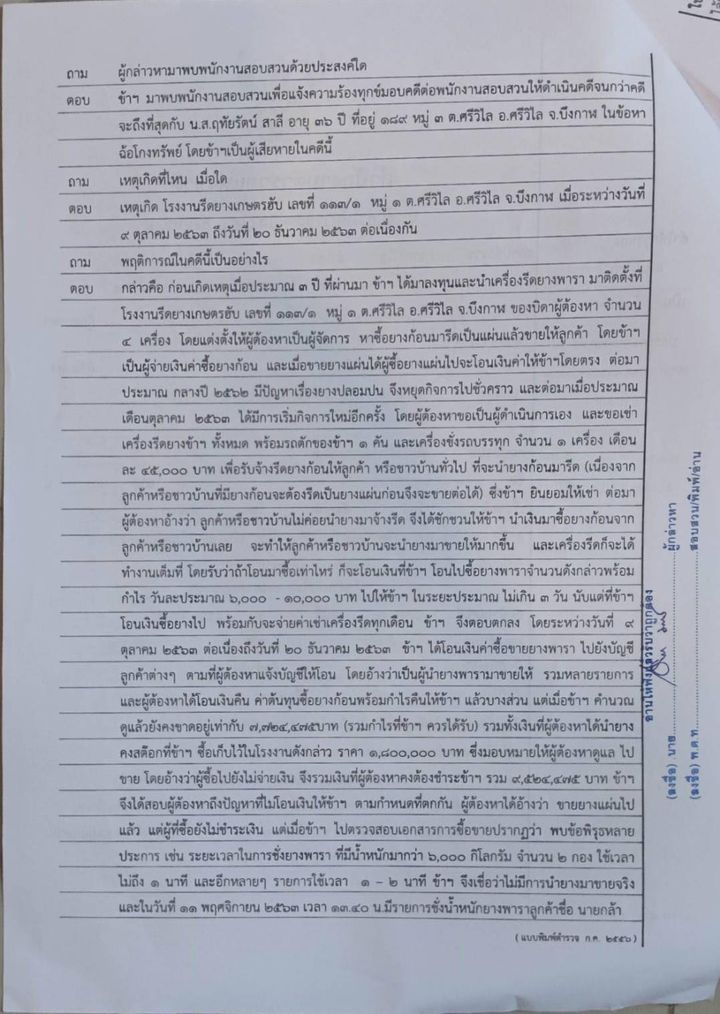 ถาม ผู้กล่าวหามาพบพนักงานสอบสวนด้วยประสงค์ใด
ตอบ ข้าฯ มาพบพนักงานสอบสวนเพื่อแจ้งความร้องทุกข์มอบคดีต่อพนักงานสอบสวนให้ดำเนินคดีจนกว่าคดี
จะถึงที่สุดกับ น.ส.ฤทัยรัตน์ สาลี อายุ ๓๖ ปี ที่อยู่ ๑๘๙ หมู่ ๓ ต.ศรีวิไล อ.ศรีวิไล จ.บึงกาฬ ในข้อหา
ฉ้อโกงทรัพย์ โดยข้าฯเป็นผู้เสียหายในคดีนี้
ถาม เหตุเกิดที่ไหน เมื่อใด
ตอบ เหตุเกิด โรงงานรีดยางเกษตรฮับ เลขที่ ๑๑๓/๑ หมู่ ๑ ต.ศรีวิไล อ.ศรีวิไล จ.บึงกาฬ เมื่อระหว่างวันที่
๙ ตุลาคม ๒๕๖๓ ถึงวันที่ ๒๐ ธันวาคม ๒๕๖๓ ต่อเนื่องกัน
ถาม พฤติการณ์ในคดีนี้เป็นอย่างไร
ตอบ กล่าวคือ ก่อนเกิดเหตุเมื่อประมาณ ๓ ปี ที่ผ่านมา ข้าฯ ได้มาลงทุนและนำเครื่องรีดยางพารา มาติดตั้งที่
โรงงานรีดยางเกษตรฮับ เลขที่ ๑๑๓/๑ หมู่ ๑ ต.ศรีวิไล อ.ศรีวิไล จ.บึงกาฬ ของบิดาผู้ต้องหา จำนวน
๔ เครื่อง โดยแต่งตั้งให้ผู้ต้องหาเป็นผู้จัดการ หาซื้อยางก้อนมารีดเป็นแผ่นแล้วขายให้ลูกค้า โดยข้าฯ
เป็นผู้จ่ายเงินค่าซื้อยางก้อน และเมื่อขายยางแผ่นได้ผู้ซื้อยางแผ่นไปจะโอนเงินค่าให้ข้าฯโดยตรง ต่อมา
ประมาณ กลางปี ๒๕๖๒ มีปัญหาเรื่องยางปลอมปน จึงหยุดกิจการไปชั่วคราว และต่อมาเมื่อประมาณ
เดือนตุลาคม ๒๕๖๓ ได้มีการเริ่มกิจการใหม่อีกครั้ง โดยผู้ต้องหาขอเป็นผู้ดำเนินการเอง และขอเช่า
เครื่องรีดยางข้าฯ ทั้งหมด พร้อมรถตักของข้าฯ ๑ คัน และเครื่องชั่งรถบรรทุก จำนวน ๑ เครื่อง เดือน
ละ ๔๕,๐๐๐ บาท เพื่อรับจ้างรีดยางก้อนให้ลูกค้า หรือชาวบ้านทั่วไป ที่จะนำยางก้อนมารีด (เนื่องจาก
ลูกค้าหรือชาวบ้านที่มียางก้อนจะต้องรีดเป็นยางแผ่นก่อนจึงจะขายต่อได้) ซึ่งข้าฯ ยินยอมให้เช่า ต่อมา
ผู้ต้องหาอ้างว่า ลูกค้าหรือชาวบ้านไม่ค่อยนำยางมาจ้างรีด จึงได้ชักชวนให้ข้าฯ นำเงินมาซื้อยางก้อนจาก
ลูกค้าหรือชาวบ้านเลย จะทำให้ลูกค้าหรือชาวบ้านจะนำยางมาขายให้มากขึ้น และเครื่องรีดก็จะได้
ทำงานเต็มที่ โดยรับว่าถ้าโอนมาซื้อเท่าไหร่ ก็จะโอนเงินที่ข้าฯ โอนไปซื้อยางพาราจำนวนดังกล่าวพร้อม
กำไร วันละประมาณ ๖,๐๐๐ - ๑๐,๐๐๐ บาท ไปให้ข้าฯ ในระยะประมาณ ไม่เกิน ๓ วัน นับแต่ที่ข้าฯ
โอนเงินซื้อยางไป พร้อมกับจะจ่ายค่าเช่าเครื่องรีดทุกเดือน ข้าฯ จึงตอบตกลง โดยระหว่างวันที่ ๙
ตุลาคม ๒๕๖๓ ต่อเนื่องถึงวันที่ ๒๐ ธันวาคม ๒๕๖๓ ข้าฯ ได้โอนเงินค่าซื้อขายยางพารา ไปยังบัญชี
ลูกค้าต่างๆ ตามที่ผู้ต้องหาแจ้งบัญชีให้โอน โดยอ้างว่าเป็นผู้นำยางพารามาขายให้ รวมหลายรายการ
และผู้ต้องหาได้โอนเงินคืน ค่าต้นทุนซื้อยางก้อนพร้อมกำไรคืนให้ข้าฯ แล้วบางส่วน แต่เมื่อข้าฯ คำนวณ
ดูแล้วยังคงขาดอยู่เท่ากับ ๗,๗๒๔,๔๗๕บาท (รวมกำไรที่ข้าฯ ควรได้รับ) รวมทั้งเงินที่ผู้ต้องหาได้นำยาง
คงสต๊อกที่ข้าฯ ซื้อเก็บไว้ในโรงงานดังกล่าว ราคา ๑,๘๐๐,๐๐๐ บาท ซึ่งมอบหมายให้ผู้ต้องหาดูแล ไป
ขาย โดยอ้างว่าผู้ซื้อไปยังไม่จ่ายเงิน จึงรวมเงินที่ผู้ต้องหาคงต้องชำระข้าฯ รวม ๙,๕๒๔,๔๗๕ บาท ข้าฯ
จึงได้สอบผู้ต้องหาถึงปัญหาที่ไม่โอนเงินให้ข้าฯ ตามกำหนดที่ตกกัน ผู้ต้องหาได้อ้างว่า ขายยางแผ่นไป
แล้ว แต่ผู้ที่ซื้อยังไม่ชำระเงิน แต่เมื่อข้าฯ ไปตรวจสอบเอกสารการซื้อขายปรากฏว่า พบข้อพิรุธหลาย
ประการ เช่น ระยะเวลาในการชั่งยางพารา ที่มีน้ำหนักมากว่า ๖,๐๐๐ กิโลกรัม จำนวน ๒ กอง ใช้เวลา
ไม่ถึง ๑ นาที และอีกหลายๆ รายการใช้เวลา ๑ - ๒ นาที ข้าฯ จึงเชื่อว่าไม่มีการนำยางมาขายจริง
และในวันที่ ๑๑ พฤศจิกายน ๒๕๖๓ เวลา ๑๓.๔๐ น.มีรายการชั่งน้ำหนักยางพาราลูกค้าชื่อ นายกล้า
(แบบพิมพ์ตำรวจ ก.ค. ๒๕๕๖)
อ่านให้ฟังแล้วรับว่าถูกต้อง
(ลงชื่อ) นาย ผู้กล่าวหา
(ลงชื่อ) พ.ต.ท. สอบสวน/พิมพ์/อ่าน